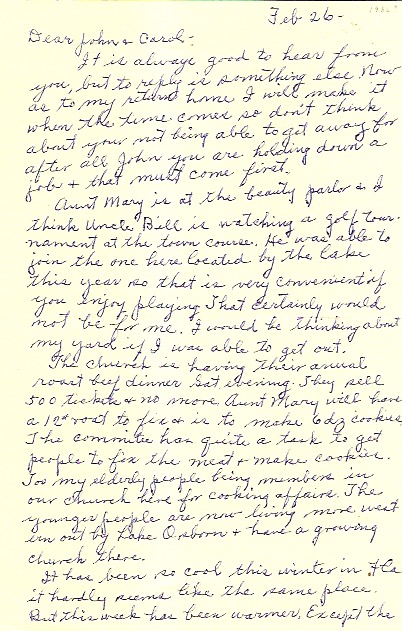 Feb 26-
Dear John & Carol-
It is always good to hear from
you, but to reply is something else. Now
as to my return home I will make it
when the time comes so don't think
about your not being able to get away for
after all John you are holding down a
job & that must come first.
Aunt Mary is at the beauty parlor & I
think Uncle Bill is watching a golf tour-
nament at the town course. He was able to
join the one here located by the lake
this year so that is very convenient if
you enjoy playing. That certainly would
not be for me. I would be thinking about
my yard if I was able to get out.
The church is having their anual
roast beef dinner Sat evening. They sell
500 tickets & no more. Aunt Mary will have
a 12# roast to fix & is to make 6 dz cookies.
The commitee has quite a task to get
people to fix the meat & make cookies.
Too my elderly people being members in
our church here for cooking affairs. The
younger people are now living more west
ern out by Lake Osborn & have a growing
church there.
It has been so cool this winter in Fla
it hardly seems like the same place.
But this week has been warmer. Except the